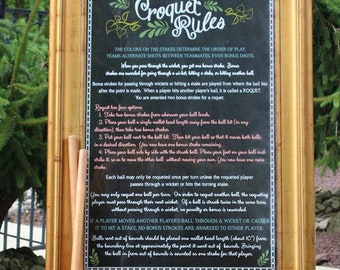 Croquet
Rules
THE COLORS ON THE STAKES DETERMINE THE ORDER OF PLAY.
TEAMS ALTERNATE SHOTS BETWEEN TEAMMATES, EVEN BONUS SHOTS.
When you pass through the wicket, you get one bonus stroke. Bonus
strokes are awarded for going through a wicket, hitting a stake, or hitting another ball.
Bonus strokes for passing through wickets or hitting a stake are played from where the ball lies
after the point is made. When a player hits another player's ball, it is called a ROQUET.
You are awarded two bonus strokes for a roquet.
Roquet has four options:
1. Take two bonus strokes from wherever your ball lies.
2. Place your ball a single mallet head length away from the ball hit (in any
direction), then take two bonus strokes.
3. Put your ball next to the ball hit. Then hit your ball so that it moves both balls
in a desired direction. You have one bonus stroke remaining.
4. Place your ball side by side with the struck ball. Place your foot on your ball and
strike it, so as to move the other ball without moving your own. You now have one more
stroke.
Each ball may only be roqueted once per turn unless the roqueted player
passes through a wicket or hits the turning stake.
You may only roquet one ball per turn. In order to roquet another ball, the roqueting
player must pass through their next wicket. If a ball is struck twice in the same turn,
without passing through a wicket, no penalty or bonus is awarded.
IF A PLAYER MOVES ANOTHER PLAYER'S BALL THROUGH A WICKET OR CAUSES
IT TO HIT A STAKE, NO BONUS STROKES ARE AWARDED TO EITHER PLAYER.
Balls sent out of bounds should be placed one mallet head length (about 10") from
the boundary line at approximately the point it went out of bounds. Bringing
the ball in from out of bounds is counted as one stroke for that player.